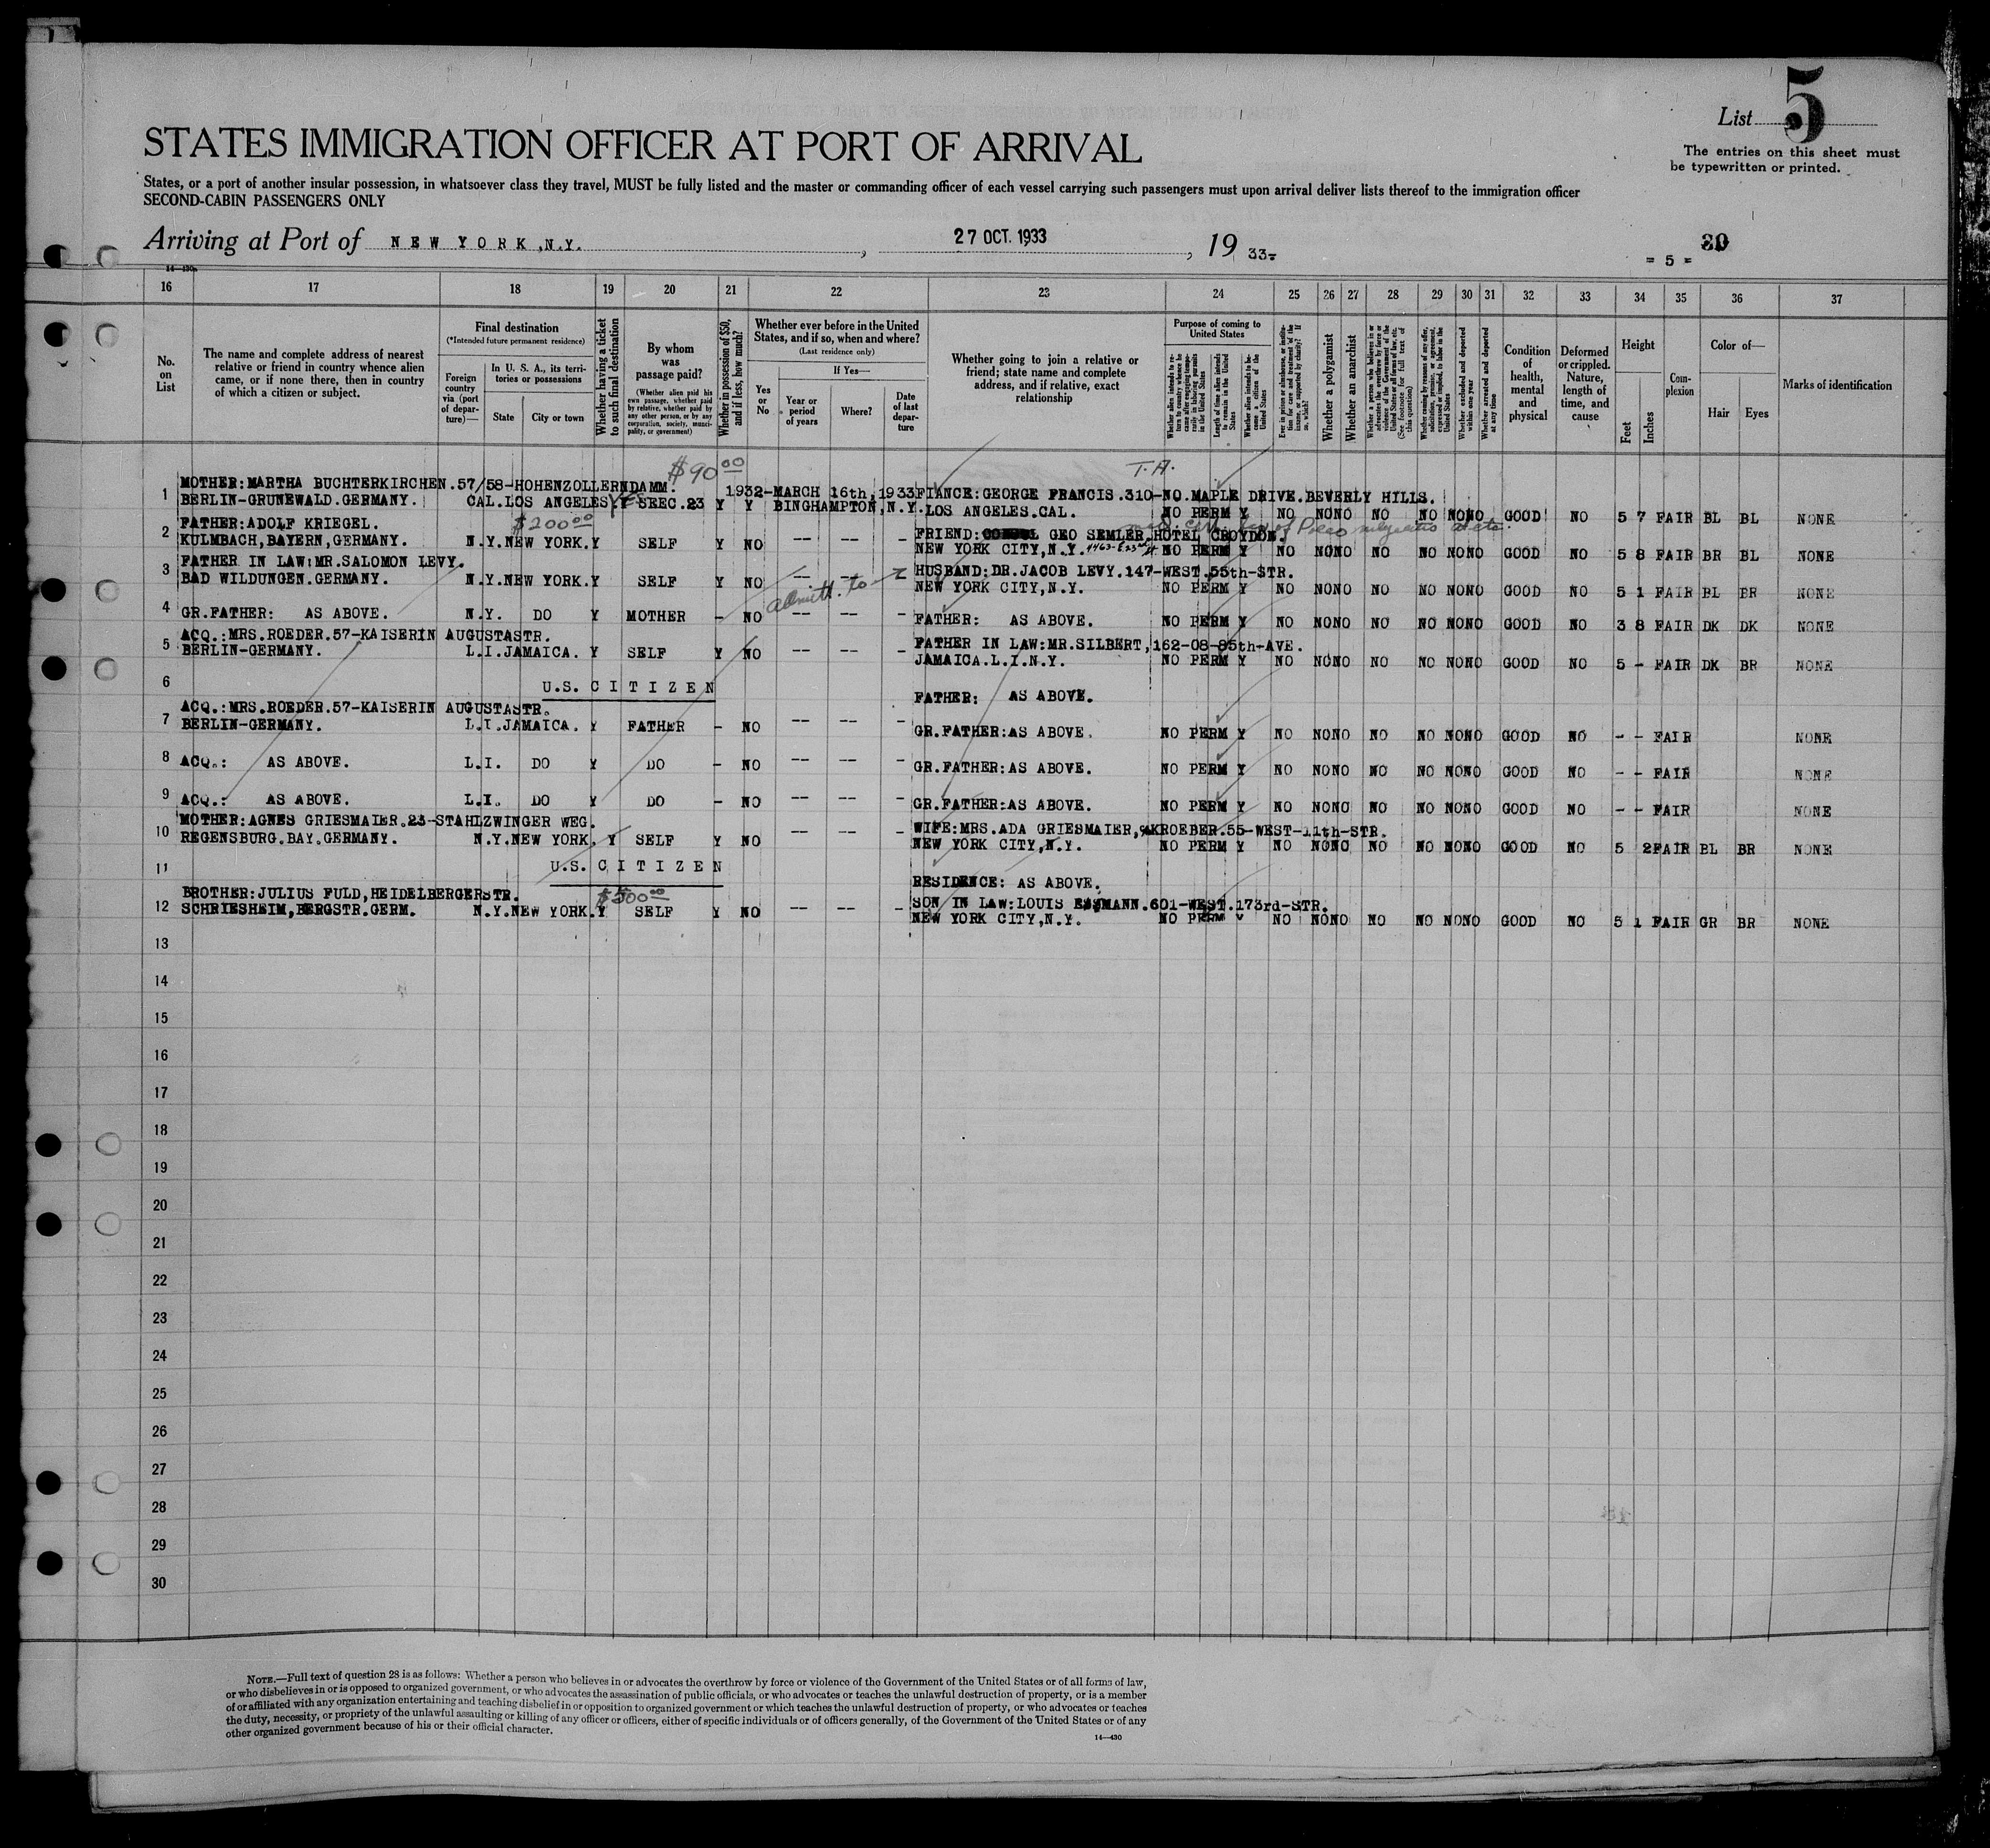 List 5
STATES IMMIGRATION OFFICER AT PORT OF ARRIVAL
The entries on this sheet must
be typewritten or printed.
States, or a port of another insular possession, in whatsoever class they travel, MUST be fully listed and the master or commanding officer of each vessel carrying such passengers must upon arrival deliver lists thereof to the immigration officer
SECOND-CABIN PASSENGERS ONLY
Arriving at Port of NEW YORK, N.Y. , 27 OCT. 1933 , 19 33.
= 5 =
14—430
16 17 18 19 20 21 22 23 24 25 26 27 28 29 30 31 32 33 34 35 36 37
No. on List
The name and complete address of nearest relative or friend in country whence alien came, or if none there, then in country of which a citizen or subject.
Final destination
(*Intended future permanent residence)
Foreign country via (port of departure)—
In U. S. A., its territories or possessions
State
City or town
Whether having a ticket to such final destination
By whom was passage paid?
(Whether alien paid his own passage, whether paid by relative, whether paid by any other person, or by any corporation, society, municipality, or government)
Whether in possession of $50, and if less, how much?
Whether ever before in the United States, and if so, when and where?
(Last residence only)
Yes or No
If Yes—
Year or period of years
Where?
Date of last departure
Whether going to join a relative or friend; state name and complete address, and if relative, exact relationship
Purpose of coming to United States
Whether alien intends to return to country whence he came after engaging temporarily in laboring pursuits in the United States
Length of time alien intends to remain in the United States
Whether alien intends to become a citizen of the United States
Ever in prison or almshouse, or institution for care and treatment of the insane, or supported by charity? If so, which?
Whether a polygamist
Whether an anarchist
Whether a person who believes in or advocates the overthrow by force or violence of the Government of the United States or all forms of law, etc. (See footnote for full text of this question)
Whether coming by reason of any offer, solicitation, promise, or agreement, expressed or implied, to labor in the United States
Whether excluded and deported within one year
Whether arrested and deported at any time
Condition of health, mental and physical
Deformed or crippled. Nature, length of time, and cause
Height
Feet
Inches
Complexion
Color of—
Hair
Eyes
Marks of identification
$90 00
T.A.
1 MOTHER:MARTHA BUCHTERKIRCHEN.57/58-HOHENZOLLERNDAMM. 1932-MARCH 16th,1933 FIANCE:GEORGE FRANCIS.310-NO.MAPLE DRIVE.BEVERLY HILLS.
BERLIN-GRUNEWALD.GERMANY. CAL.LOS ANGELES. Y SREC.23 Y Y BINGHAMPTON,N.Y. LOS ANGELES.CAL. NO PERM Y NO NONO NO NO NONO GOOD NO 5 7 FAIR BL BL NONE
$200 00
2 FATHER:ADOLF KRIEGEL. FRIEND: GEO SEMLER.HOTEL CROYDON.
KULMBACH,BAYERN,GERMANY. N.Y.NEW YORK.Y SELF Y NO — — - NEW YORK CITY,N.Y. NO PERM Y NO NONO NO NO NONO GOOD NO 5 8 FAIR BR BL NONE
3 FATHER IN LAW:MR.SALOMON LEVY. HUSBAND:DR.JACOB LEVY.147-WEST.55th-STR.
BAD WILDUNGEN.GERMANY. N.Y.NEW YORK.Y SELF Y NO — — NEW YORK CITY,N.Y. NO PERM Y NO NONO NO NO NONO GOOD NO 5 1 FAIR BL BR NONE
admitt. to
4 GR.FATHER: AS ABOVE. N.Y. DO Y MOTHER - NO — — - FATHER: AS ABOVE. NO PERM Y NO NONO NO NO NONO GOOD NO 3 8 FAIR DK DK NONE
5 ACQ.:MRS.ROEDER.57-KAISERIN AUGUSTASTR. FATHER IN LAW:MR.SILBERT,162-08-85th-AVE.
BERLIN-GERMANY. L.I.JAMAICA. Y SELF Y NO — — - JAMAICA.L.I.N.Y. NO PERM Y NO NONO NO NO NONO GOOD NO 5 - FAIR DK BR NONE
6 U.S. CITIZEN FATHER: AS ABOVE.
7 ACQ.:MRS.ROEDER.57-KAISERIN AUGUSTASTR.
BERLIN-GERMANY. L.I.JAMAICA. Y FATHER - NO — — - GR.FATHER:AS ABOVE. NO PERM Y NO NONO NO NO NONO GOOD NO - - FAIR NONE
8 ACQ.: AS ABOVE. L.I. DO Y DO - NO — — - GR.FATHER:AS ABOVE. NO PERM Y NO NONO NO NO NONO GOOD NO - - FAIR NONE
9 ACQ.: AS ABOVE. L.I. DO Y DO - NO — — - GR.FATHER:AS ABOVE. NO PERM Y NO NONO NO NO NONO GOOD NO - - FAIR NONE
10 MOTHER:AGNES GRIESMAIER.23-STAHLZWINGER WEG. WIFE:MRS.ADA GRIESMAIER,%KROEBER.55-WEST-11th-STR.
REGENSBURG.BAY.GERMANY. N.Y.NEW YORK. Y SELF Y NO — — - NEW YORK CITY,N.Y. NO PERM Y NO NONO NO NO NONO GOOD NO 5 2 FAIR BL BR NONE
11 U.S. CITIZEN RESIDENCE: AS ABOVE.
$500 00
12 BROTHER:JULIUS FULD,HEIDELBERGERSTR. SON IN LAW:LOUIS .601-WEST.173rd-STR.
SCHRIESHEIM,BERGSTR.GERM. N.Y.NEW YORK.Y SELF Y NO — — - NEW YORK CITY,N.Y. NO PERM Y NO NONO NO NO NONO GOOD NO 5 1 FAIR GR BR NONE
13
14
15
16
17
18
19
20
21
22
23
24
25
26
27
28
29
30
NOTE.—Full text of question 28 is as follows: Whether a person who believes in or advocates the overthrow by force or violence of the Government of the United States or of all forms of law,
or who disbelieves in or is opposed to organized government, or who advocates the assassination of public officials, or who advocates or teaches the unlawful destruction of property, or is a member
of or affiliated with any organization entertaining and teaching disbelief in or opposition to organized government or which teaches the unlawful destruction of property, or who advocates or teaches
the duty, necessity, or propriety of the unlawful assaulting or killing of any officer or officers, either of specific individuals or of officers generally, of the Government of the United States or of any
other organized government because of his or their official character.
14—430